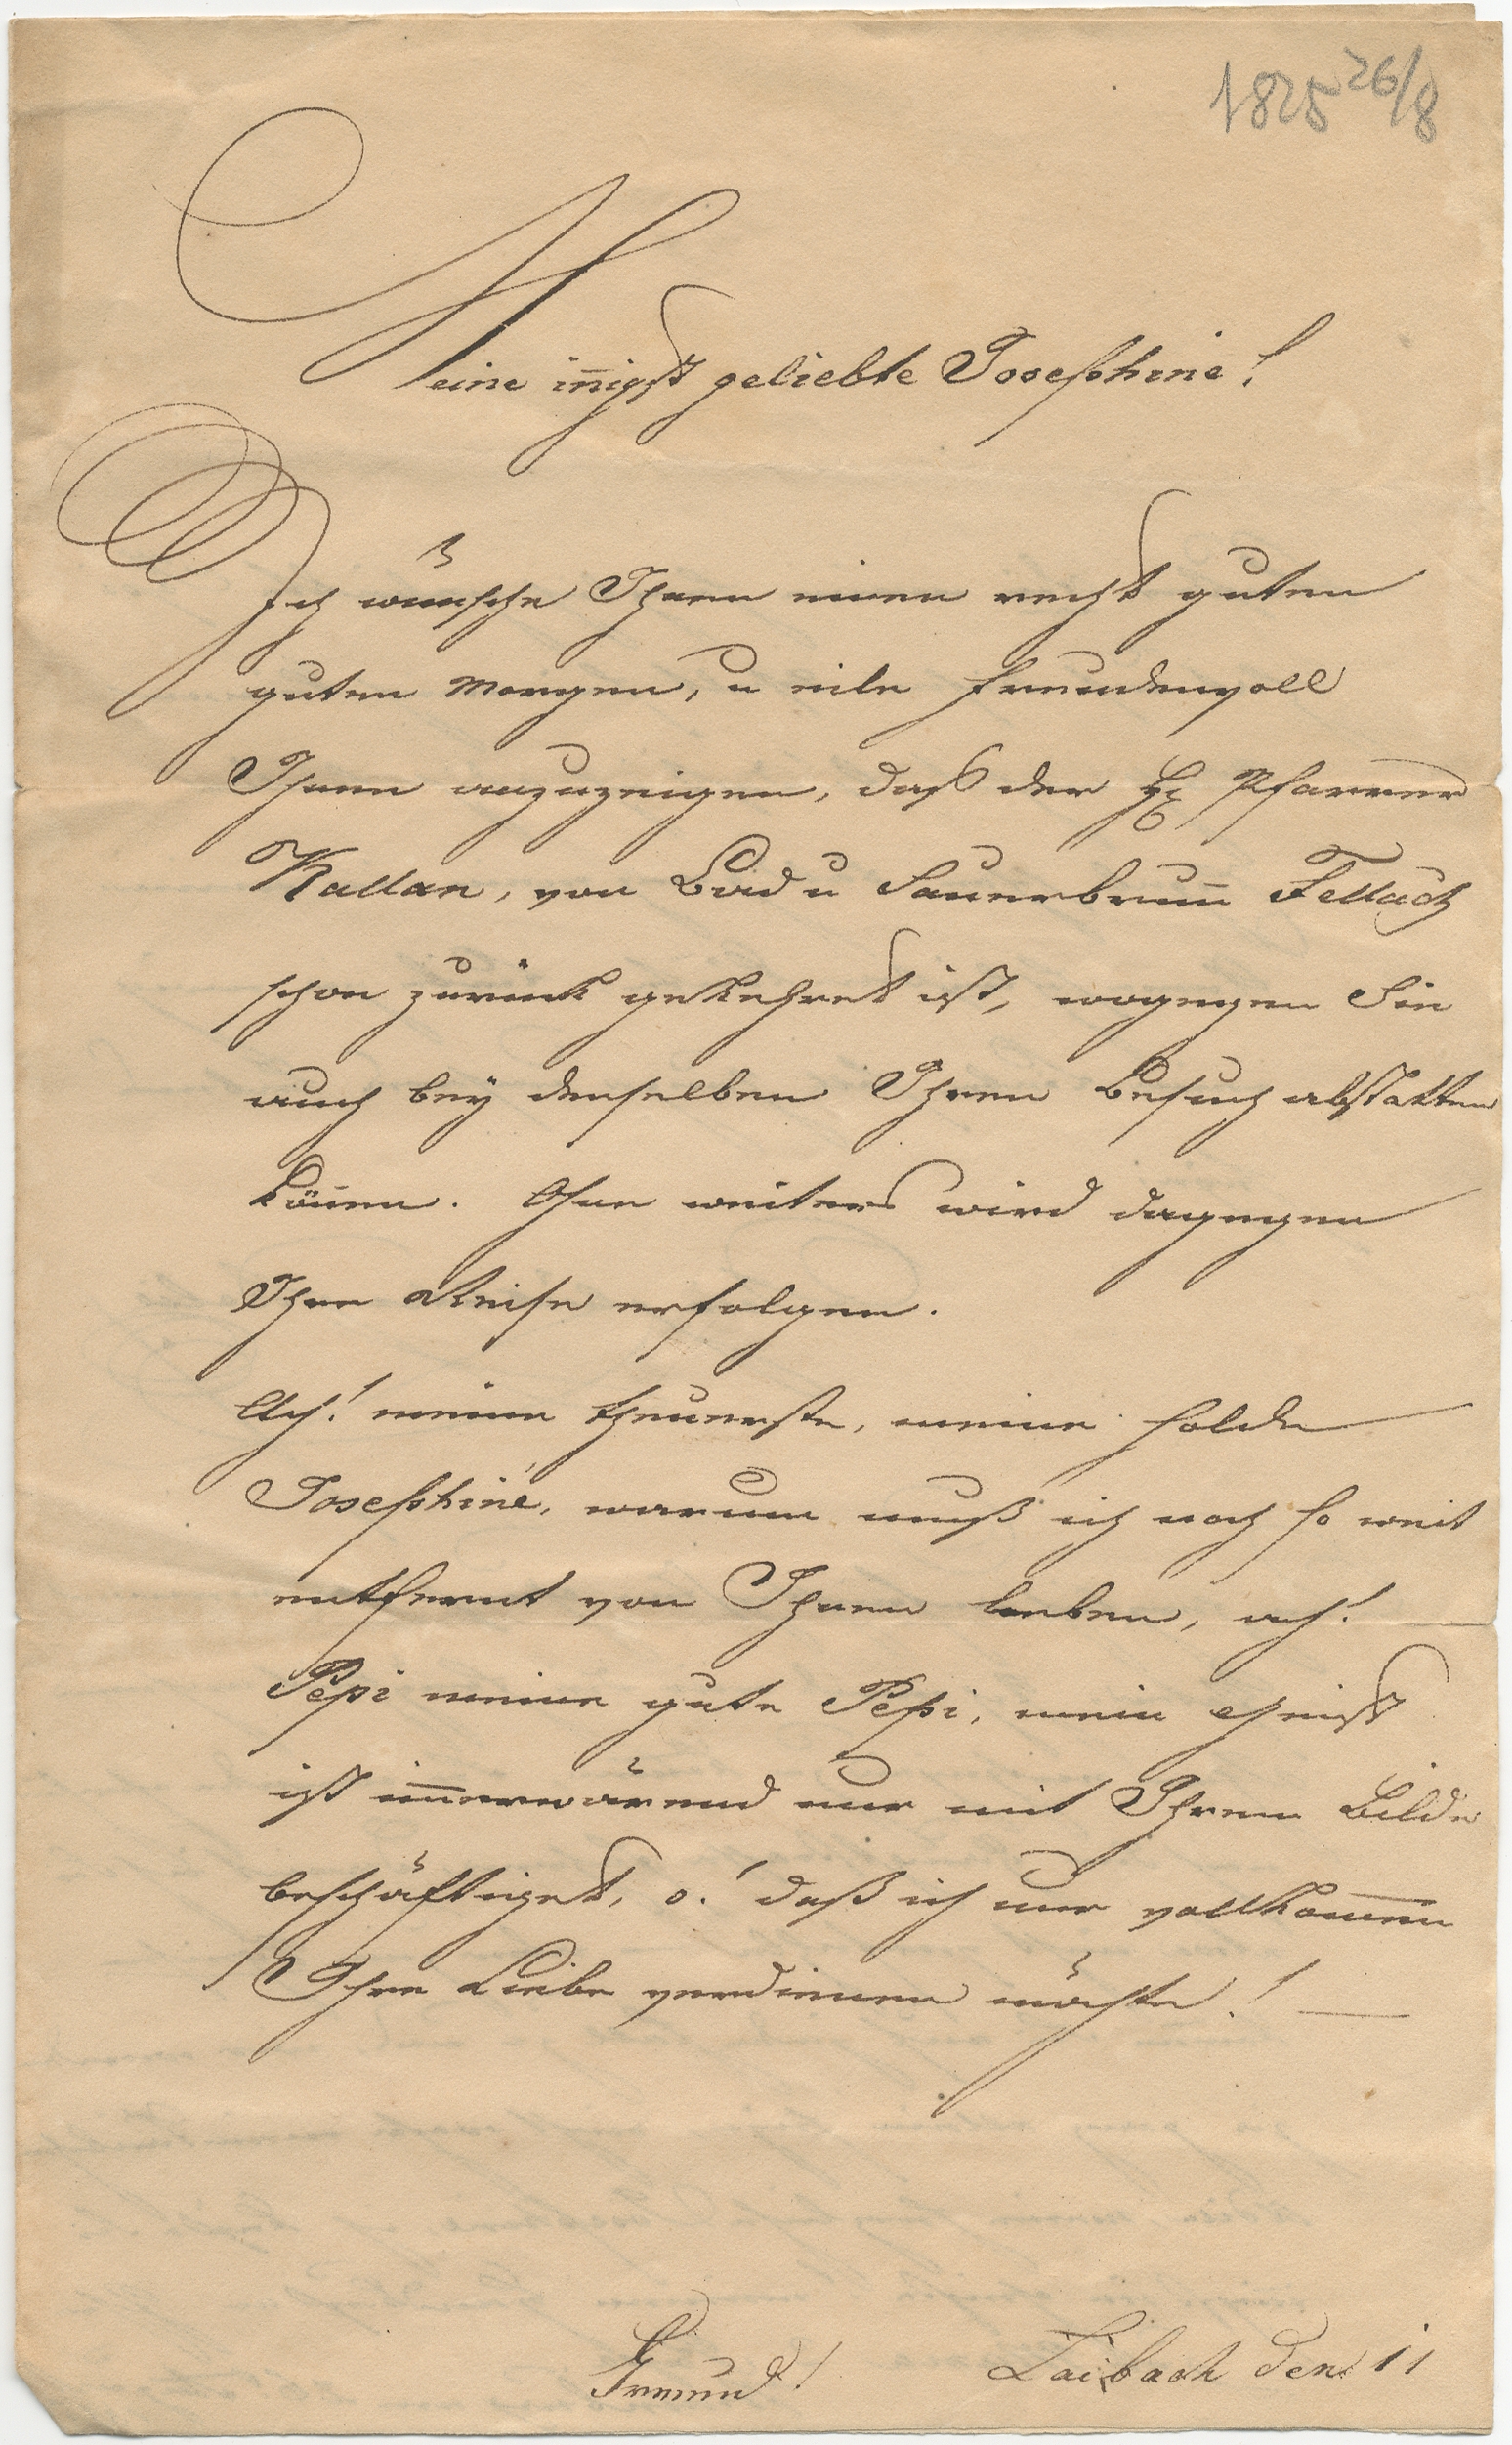 1825 26/8
Meine iñigst geliebte Josephine!
Ich wünsche Ihnen einen recht guten
guten Morgen, u eile freudenvoll
Ihnen anzuzeigen, daß der H. Pfarrer
Kallan, von Bad u Sauerbruñ Fellach
schon zurück gekehret ist, wogegen Sie
auch bey denselben Ihren Besuch abstatten
köñen. Ohne weiters wird dagegen
Ihre Reise erfolgen.
Ach! meine theuerste, meine holde
Josephine, warum muß ich noch so weit
entfernt von Ihnen leben, ach!
Pepi meine gute Pepi, mein Geist
ist im̄erwärend nur mit Ihrem Bilde
beschäftiget, o! daß ich nur vollkom̄en
Ihre Liebe verdienen möchte! —
Freund! Laibach den 11